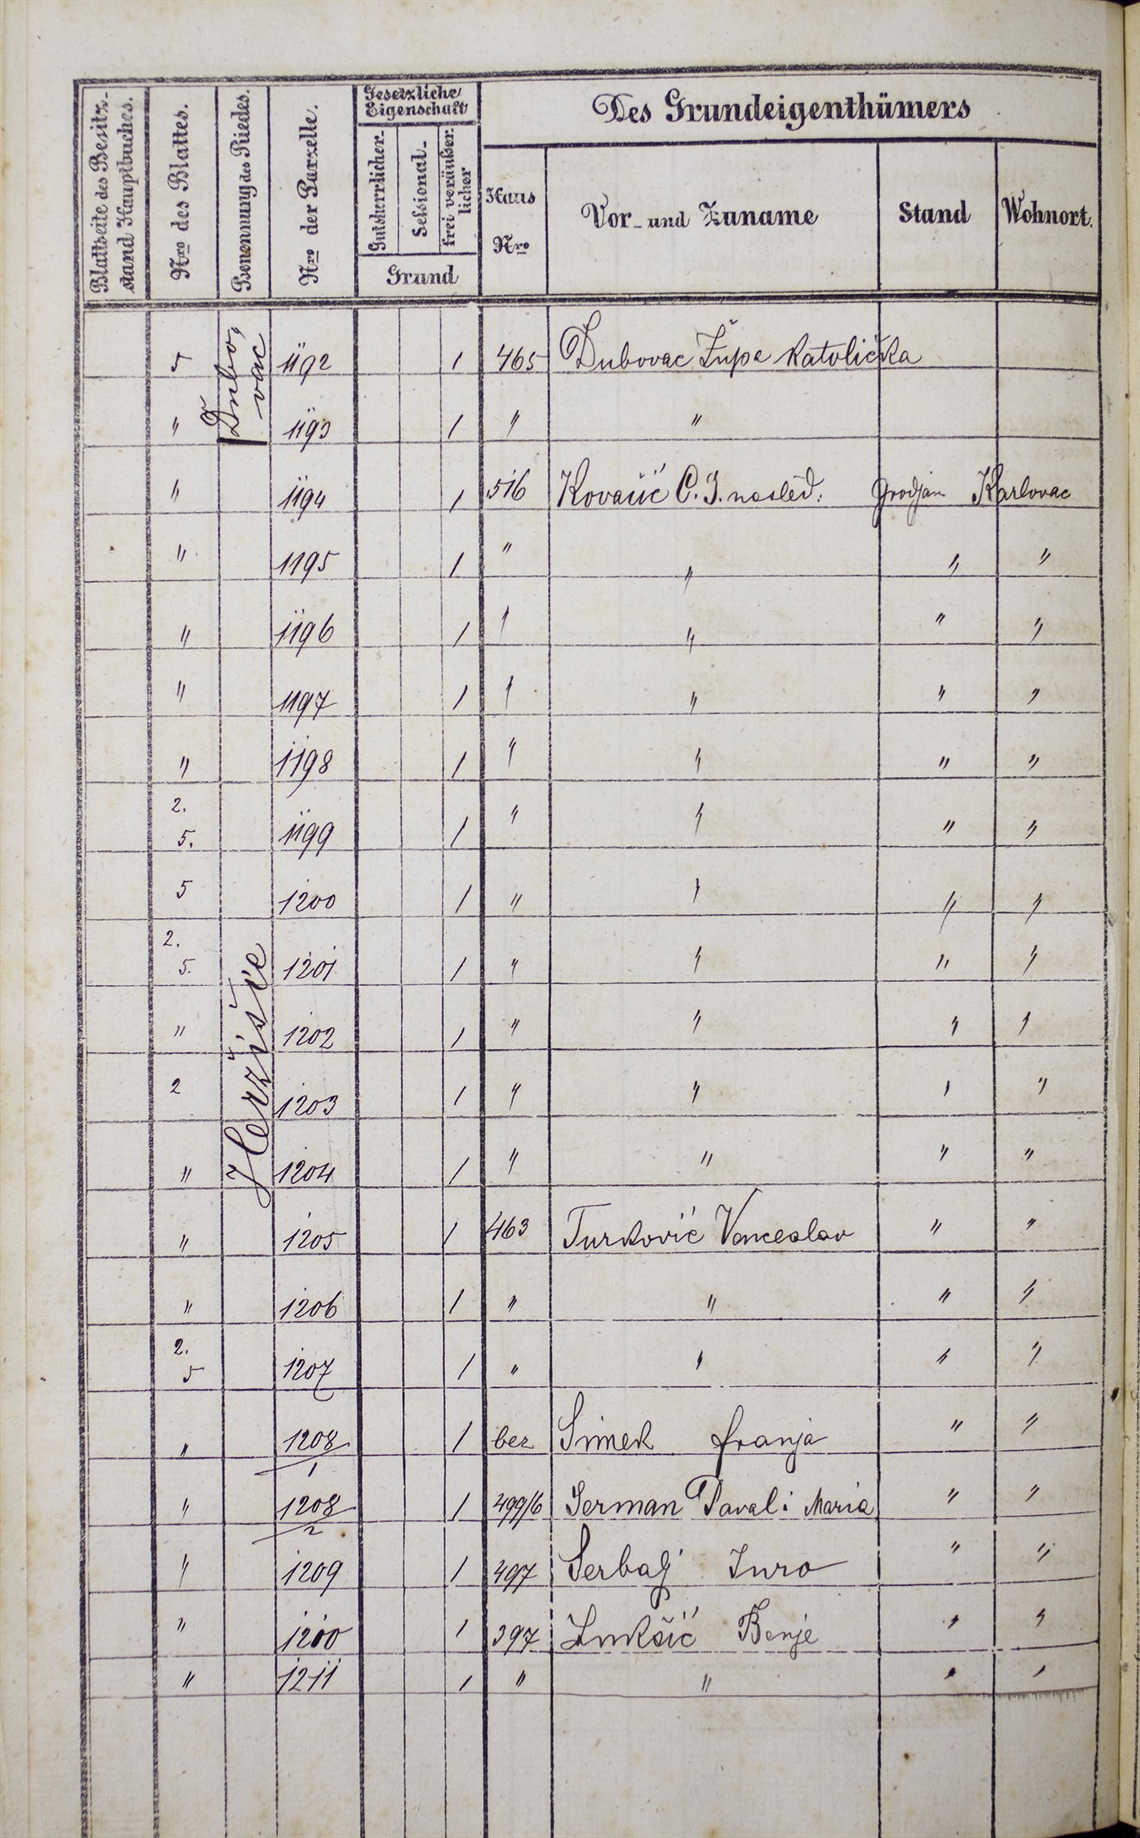 Blattseite des Besitz-stand Hauptbuches. Nro des Blattes. Benennung des Riedes. Nro der Parzelle. Gesetzliche Eigenschaft Des Grundeigenthümers
Gutsherrlicher Sessional- frei veräußerlicher Grund Haus Nro Vor- und Zuname Stand Wohnort.
5 Dubovac 1192 1 465 Dubovac Župa Katolička
" 1193 1 " "
" 1194 1 516 Kovačić C. I. nasled. građan Karlovac
" 1195 1 " " " "
" 1196 1 " " " "
" 1197 1 " " " "
" 1198 1 " " " "
2. 5. 1199 1 " " " "
5 1200 1 " " " "
2. 5. 1201 1 " " " "
" 1202 1 " " " "
2 1203 1 " " " "
" 1204 1 " " " "
" 1205 1 463 Turković Vanceslav " "
" 1206 1 " " " "
2. 5 1207 1 " " " "
" 1208/1 1 bez Simek franja " "
" 1208/2 1 499/6 German Paval i Maria " "
" 1209 1 497 Serbalj Juro " "
" 1200 1 397 Lukšić Benje " "
" 1211 1 " " " "